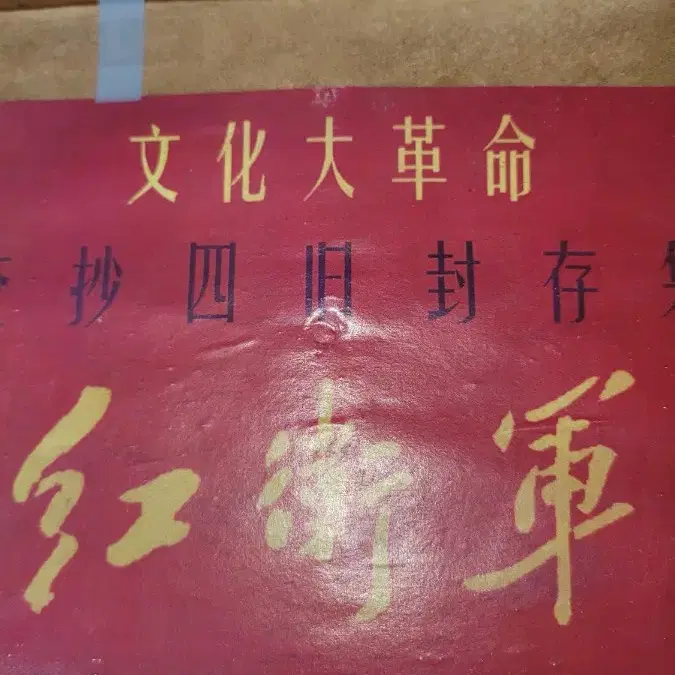 文化大革命
抄四旧封存
红衛軍